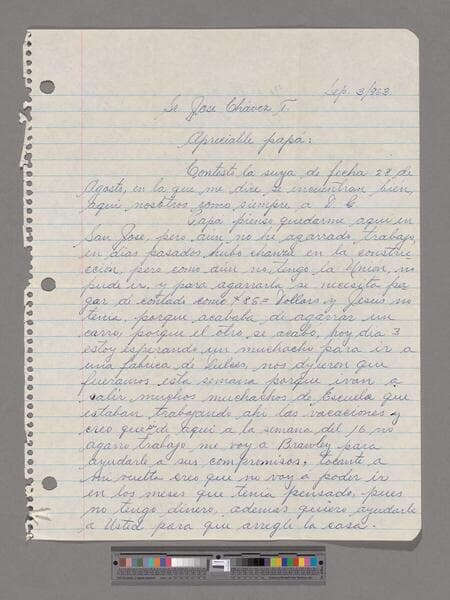 Sep. 3/963.
Sr. Jose Chávez T.
Apreciable papá:
Contesto la suya de fecha 28 de
Agosto, en la que me dice se encuentran bien,
aqui nosotros somos siempre a D. G.
Papá pienso quedarme aqui en
San Jose, pero aun no he agarrado trabajo,
en dias pasados hubo chanza en la constru
ccion, pero como aun no tengo la Union, no
pude ir, y para agarrarla se necesita pa
gar de contado como $85= Dollars y Jesus no
tenia, porque acababa de agarrar un
carro, porque el otro se acabo, hoy dia 3
estoy esperando un muchacho para ir a
una fabrica de Dulces, nos dijeron que
fueramos esta semana porque ivan a
salir muchos muchachos de Escuela que
estaban trabajando ahi las vacaciones y
creo que de aqui a la semana del 16 no
agarro trabajo me voy a Brawley para
ayudarle a sus compromisos, tocante a
mi vuelta creo que no voy a poder ir
en los meses que tenia pensado, pues
no tengo dinero, ademas quiero ayudarle
a Usted para que arregle la casa.